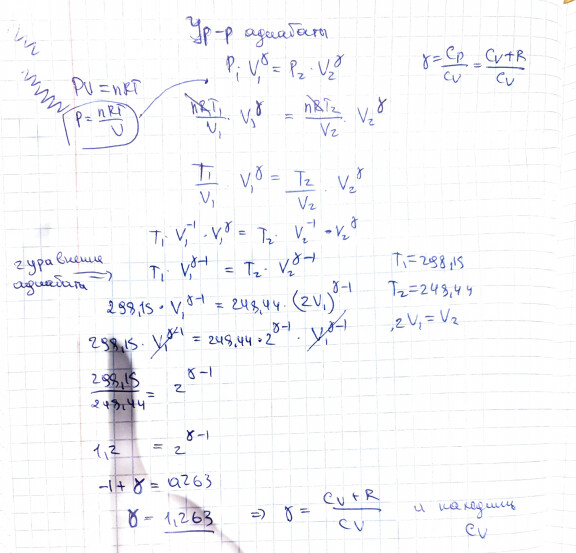 Ур-р адиабаты
P₁ V₁^γ = P₂ · V₂^γ
γ = Cp/Cv = Cv+R/Cv
PV = nRT
P = nRT/V
nRT₁/V₁ · V₁^γ = nRT₂/V₂ · V₂^γ
T₁/V₁ · V₁^γ = T₂/V₂ · V₂^γ
T₁ · V₁^-1 · V₁^γ = T₂ · V₂^-1 · V₂^γ
2 уравнение
адиабаты ⇒
T₁ · V₁^γ-1 = T₂ · V₂^γ-1
T₁ = 298,15
T₂ = 248,44
2V₁ = V₂
298,15 · V₁^γ-1 = 248,44 · (2V₁)^γ-1
298,15 · V₁^γ-1 = 248,44 · 2^γ-1 · V₁^γ-1
298,15/248,44 = 2^γ-1
1,2 = 2^γ-1
-1 + γ = 0,263
γ = 1,263 ⇒ γ = Cv+R/Cv и находишь
Cv